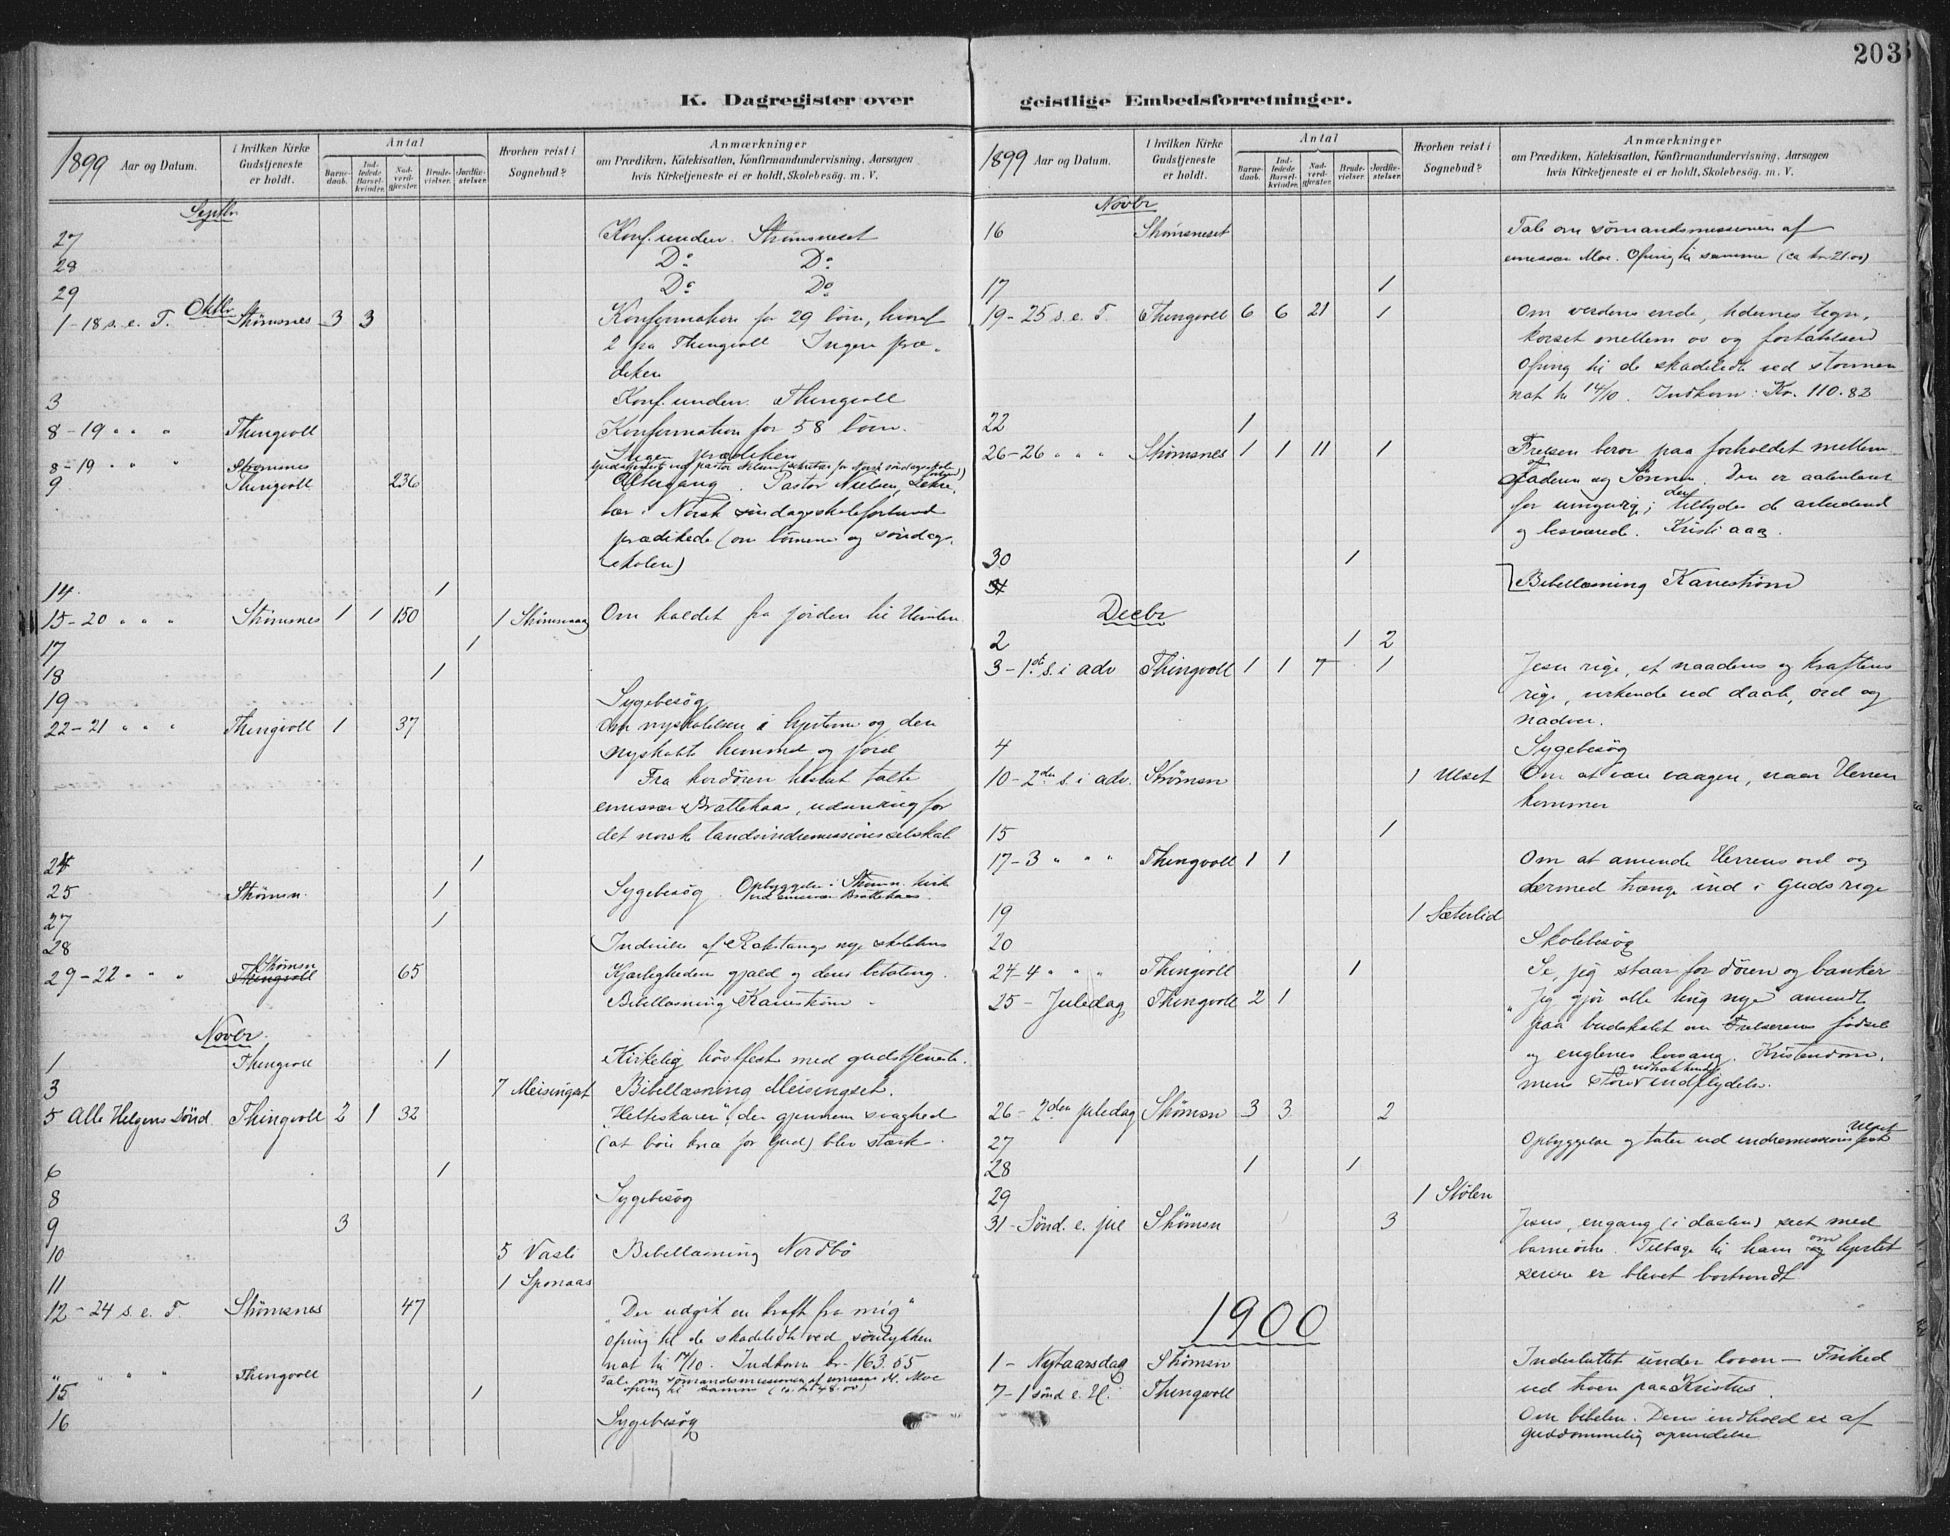 203
K. Dagregister over geistlige Embedsforretninger.
1899 Aar og Datum.
I hvilken Kirke Gudstjeneste er holdt.
Antal
Barnedaab.
Indledede Barselkvinder.
Nadverdgjester.
Brudevielser.
Jordfæstelser.
Hvorhen reist i Sognebud?
Anmærkninger
om Prædiken, Katekisation, Konfirmandundervisning, Aarsagen
hvis Kirketjeneste ei er holdt, Skolebesøg m. V.
Septbr
27 Konf. underv. Strømsneset
28 Do Do
29 Do Do
Oktbr
1-18 s. e. T. Strømsnes 3 3 Konfirmation for 29 børn, hvoraf
2 fra Thingvoll Ingen præ-
diken
3 Konf. underv. Thingvoll
8-19 " " " Thingvoll Konfirmation for 58 børn.
Ingen prædiken
8-19 " " " Strømsnes Gudstjeneste ved pastor Nielsen (sekretær for Norsk søndagsskole
9 Thingvoll 236 Altergang. Pastor Nielsen, Sekre-
tær i Norsk søndagsskoleforbund
prædikede (om børnene og søndags-
skolen)
14 1
15-20 " " " Strømsnes 1 1 150 1 Strømsaag Om kaldet fra jorden til himlen
17 1
18 1
19 Sygebesøg
22-21 " " " Thingvoll 1 37 Om nyskabelsen i hjertene og den
nyskabte himmel og jord
Fra kordøren hertil talte
emissær Brattekaas, udsending for
det norske landsindremissionsselskab
24 1
25 Strømsn. 1 Sygebesøg. Opbyggelse i Strømsn. kirke
ved emissær Brattekaas.
27 1
28 Indvielse af Rakstangs nye skolehus
29-22 " " " Strømsn Thingvoll 65 Kjærligheden gjæld og dens betaling.
Bibellæsning Kanestrøm
Novbr.
1 Thingvoll 1 Kirkelig høstfest med gudstjeneste.
3 7 Meisingset Bibellæsning Meisingset.
5 Alle Helgens Sønd. Thingvoll 2 1 32 "Helteskaren", der gjennem svaghed
(at bøie knæ for Gud) blev stærk.
6 1
8 Sygebesøg
9 3
10 5 Vasli Bibellæsning Nordbø
11 1 Sponaas
12-24 s. e. T Strømsnes 47 "Der udgik en kraft fra mig"
Ofring til de skadelidte ved søulykken
nat til 14/10. Indkom kr. 163.55
" " " " Thingvoll Tale om sømandsmissionen af emissær M. Moe
Ofring til samme (ca. kr 48.00)
15 1
16 Sygebesøg
1899 Aar og Datum.
I hvilken Kirke Gudstjeneste er holdt.
Antal
Barnedaab.
Indledede Barselkvinder.
Nadverdgjester.
Brudevielser.
Jordfæstelser.
Hvorhen reist i Sognebud?
Anmærkninger
om Prædiken, Katekisation, Konfirmandundervisning, Aarsagen
hvis Kirketjeneste ei er holdt, Skolebesøg. m. V.
Novbr
16 Strømsneset Tale om sømandsmissionen af
emissær Moe. Ofring til samme (ca kr. 21.00)
17 1
19-25 s. e. T. Thingvoll 6 6 21 1 Om verdens ende, tidernes tegn,
korset mellem os og fortabelsen
Ofring til de skadelidte ved stormen
nat til 14/10. Indkom: Kr. 110.82
22 1
26-26 " " " Strømsnes 1 1 11 1 Frelsen beror paa forholdet mellem
Faderen og Sønnen. Den er aabenbaret
for umyndige; den tilbydes de arbeidende
og besværede. Kristi aag.
30 1
Bibellæsning Kanestrøm
Decbr
2 1 2
3-1ste s. i adv Thingvoll 1 1 7 1 Jesu rige, et naadens og kraftens
rige, virkende ved daab, ord og
nadver.
4 Sygebesøg
10-2den s. i adv. Strømsn 1 Ulset Om at være vaagen, naar Herren
kommer
15 1
17-3 " " " Thingvoll 1 1 Om at anvende Herrens ord og
dermed trænge ind i Guds rige
19 1 Sæterlid
20 Skolebesøg
24-4 " " " Thingvoll 1 Se, jeg staar for døren og banker
25 - Juledag Thingvoll 2 1 "Jeg gjør alle ting nye" anvendt
paa budskabet om Frelserens fødsel
og englenes lovsang. Kristendom-
mens store indflydelse.
26 - 2den juledag Strømsn 3 3 2
27 Opbyggelse og taler ved indremissionsfest Ulset
28 1 1
29 1 Stølen
31 - Sønd. e. jul Strømsn 3 Jesus, engang (i daaben) seet med
barneøine. Tilbage til ham om hjertet
senere er blevet bortvendt
1900
1 - Nytaarsdag Strømsn Indesluttet under loven - Frihed
ved troen paa Kristus.
7-1 sønd e. H. Thingvoll Om bibelen. Dens indhold er af
guddommelig oprindelse